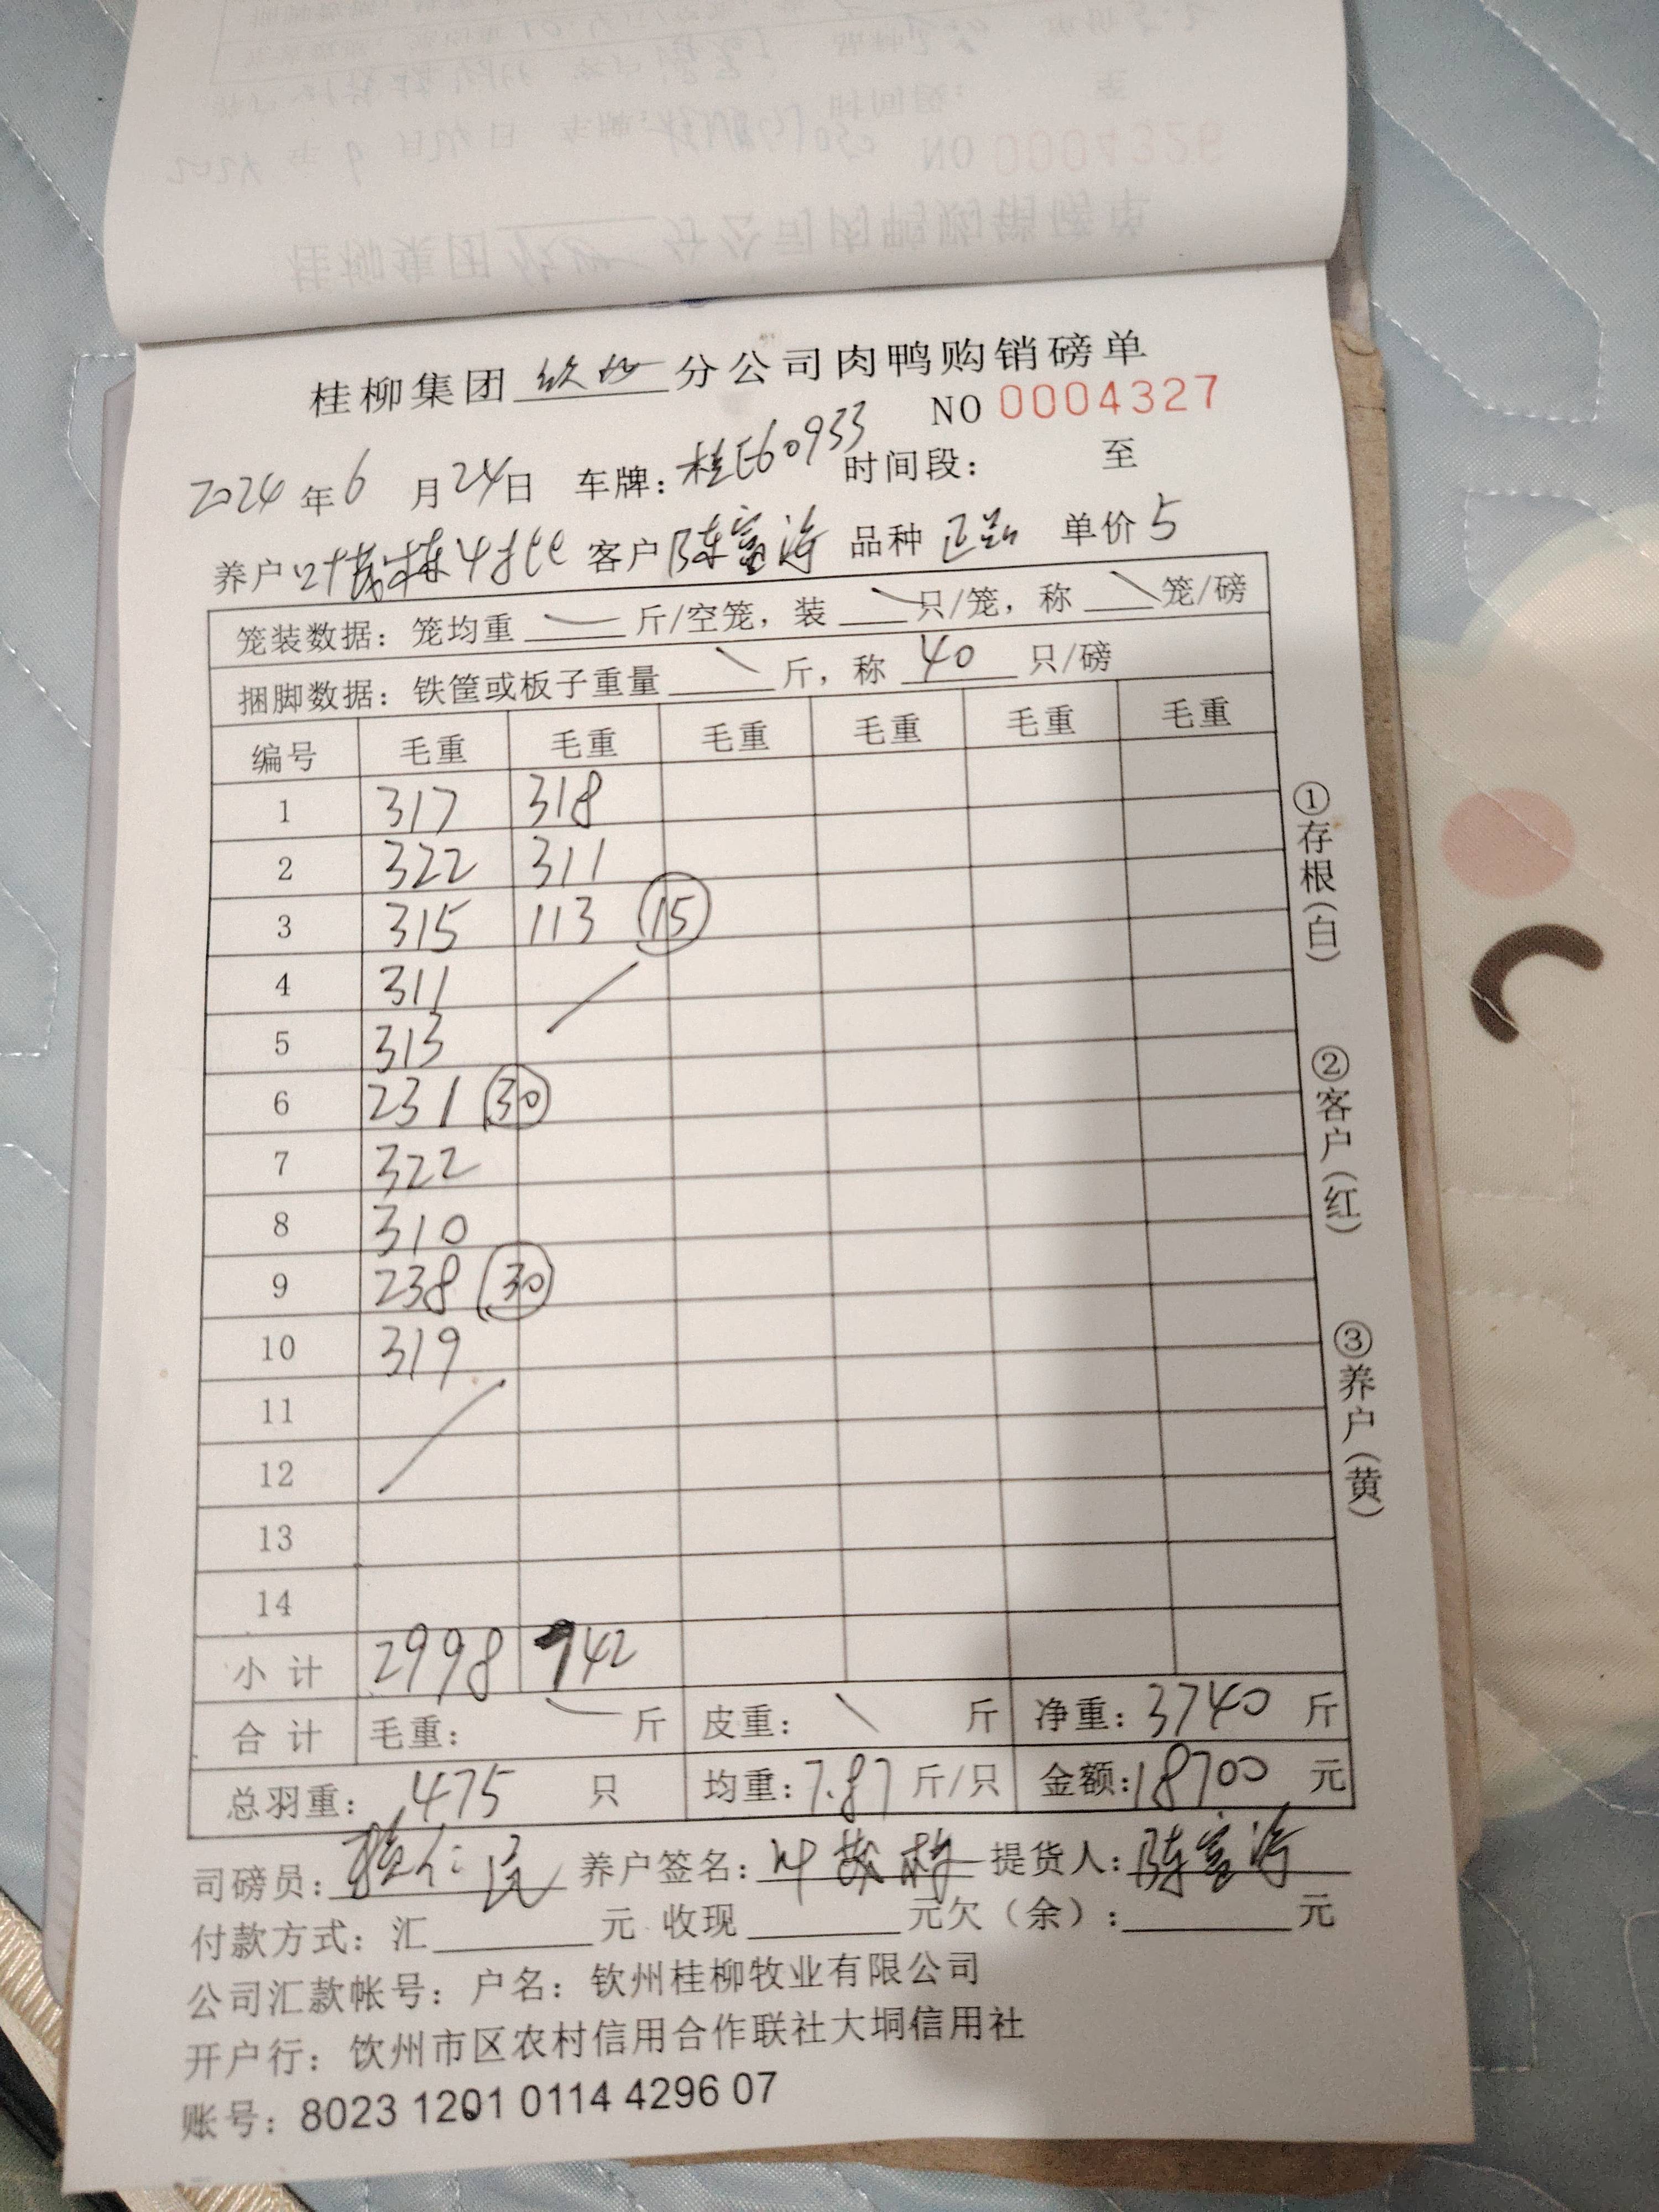 桂柳集团 钦州 分公司肉鸭购销磅单
NO 0004327
2024 年 6 月 24 日 车牌: 桂E60933 时间段: 至
养户 叶茂栋4批 客户 陈富海 品种 正品 单价 5
笼装数据: 笼均重 斤/空笼, 装 只/笼, 称 笼/磅
捆脚数据: 铁筐或板子重量 斤, 称 40 只/磅
编号 毛重 毛重 毛重 毛重 毛重 毛重
1 317 318
2 322 311
3 315 113 15
4 311
5 313
6 231 30
7 322
8 310
9 238 30
10 319
11
12
13
14
小 计 2998 742
合 计 毛重: 斤 皮重: 斤 净重: 3740 斤
总羽重: 475 只 均重: 7.87 斤/只 金额: 18700 元
司磅员: 养户签名: 叶茂栋 提货人: 陈富海
付款方式: 汇 元 收现 元欠(余): 元
公司汇款帐号: 户名: 钦州桂柳牧业有限公司
开户行: 钦州市区农村信用合作联社大垌信用社
账号: 8023 1201 0114 4296 07
①存根(白)
②客户(红)
③养户(黄)